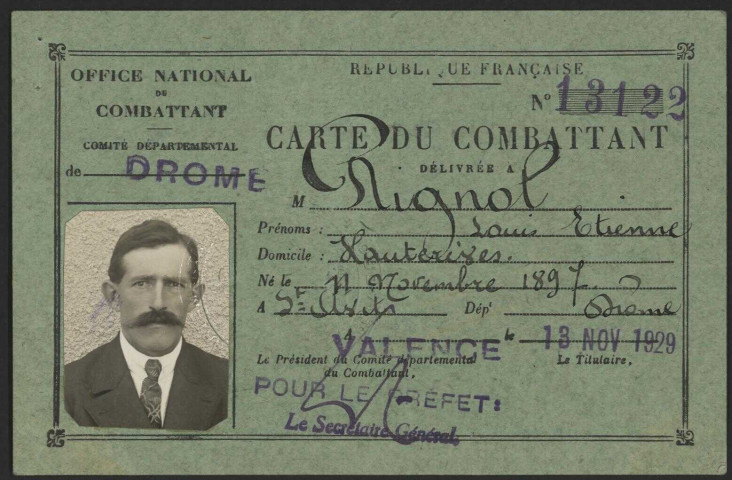 OFFICE NATIONAL
DU
COMBATTANT
COMITÉ DÉPARTEMENTAL
de DROME
RÉPUBLIQUE FRANÇAISE
N° 13122
CARTE DU COMBATTANT
DÉLIVRÉE A
M Rignol
Prénoms : Louis Etienne
Domicile : Hauterives.
Né le 11 Novembre 1897.
A St Avit Dép' Drôme
A VALENCE le 13 NOV 1929
Le Président du Comité départemental
du Combattant,
Le Titulaire,
POUR LE PRÉFET:
Le Secrétaire Général,